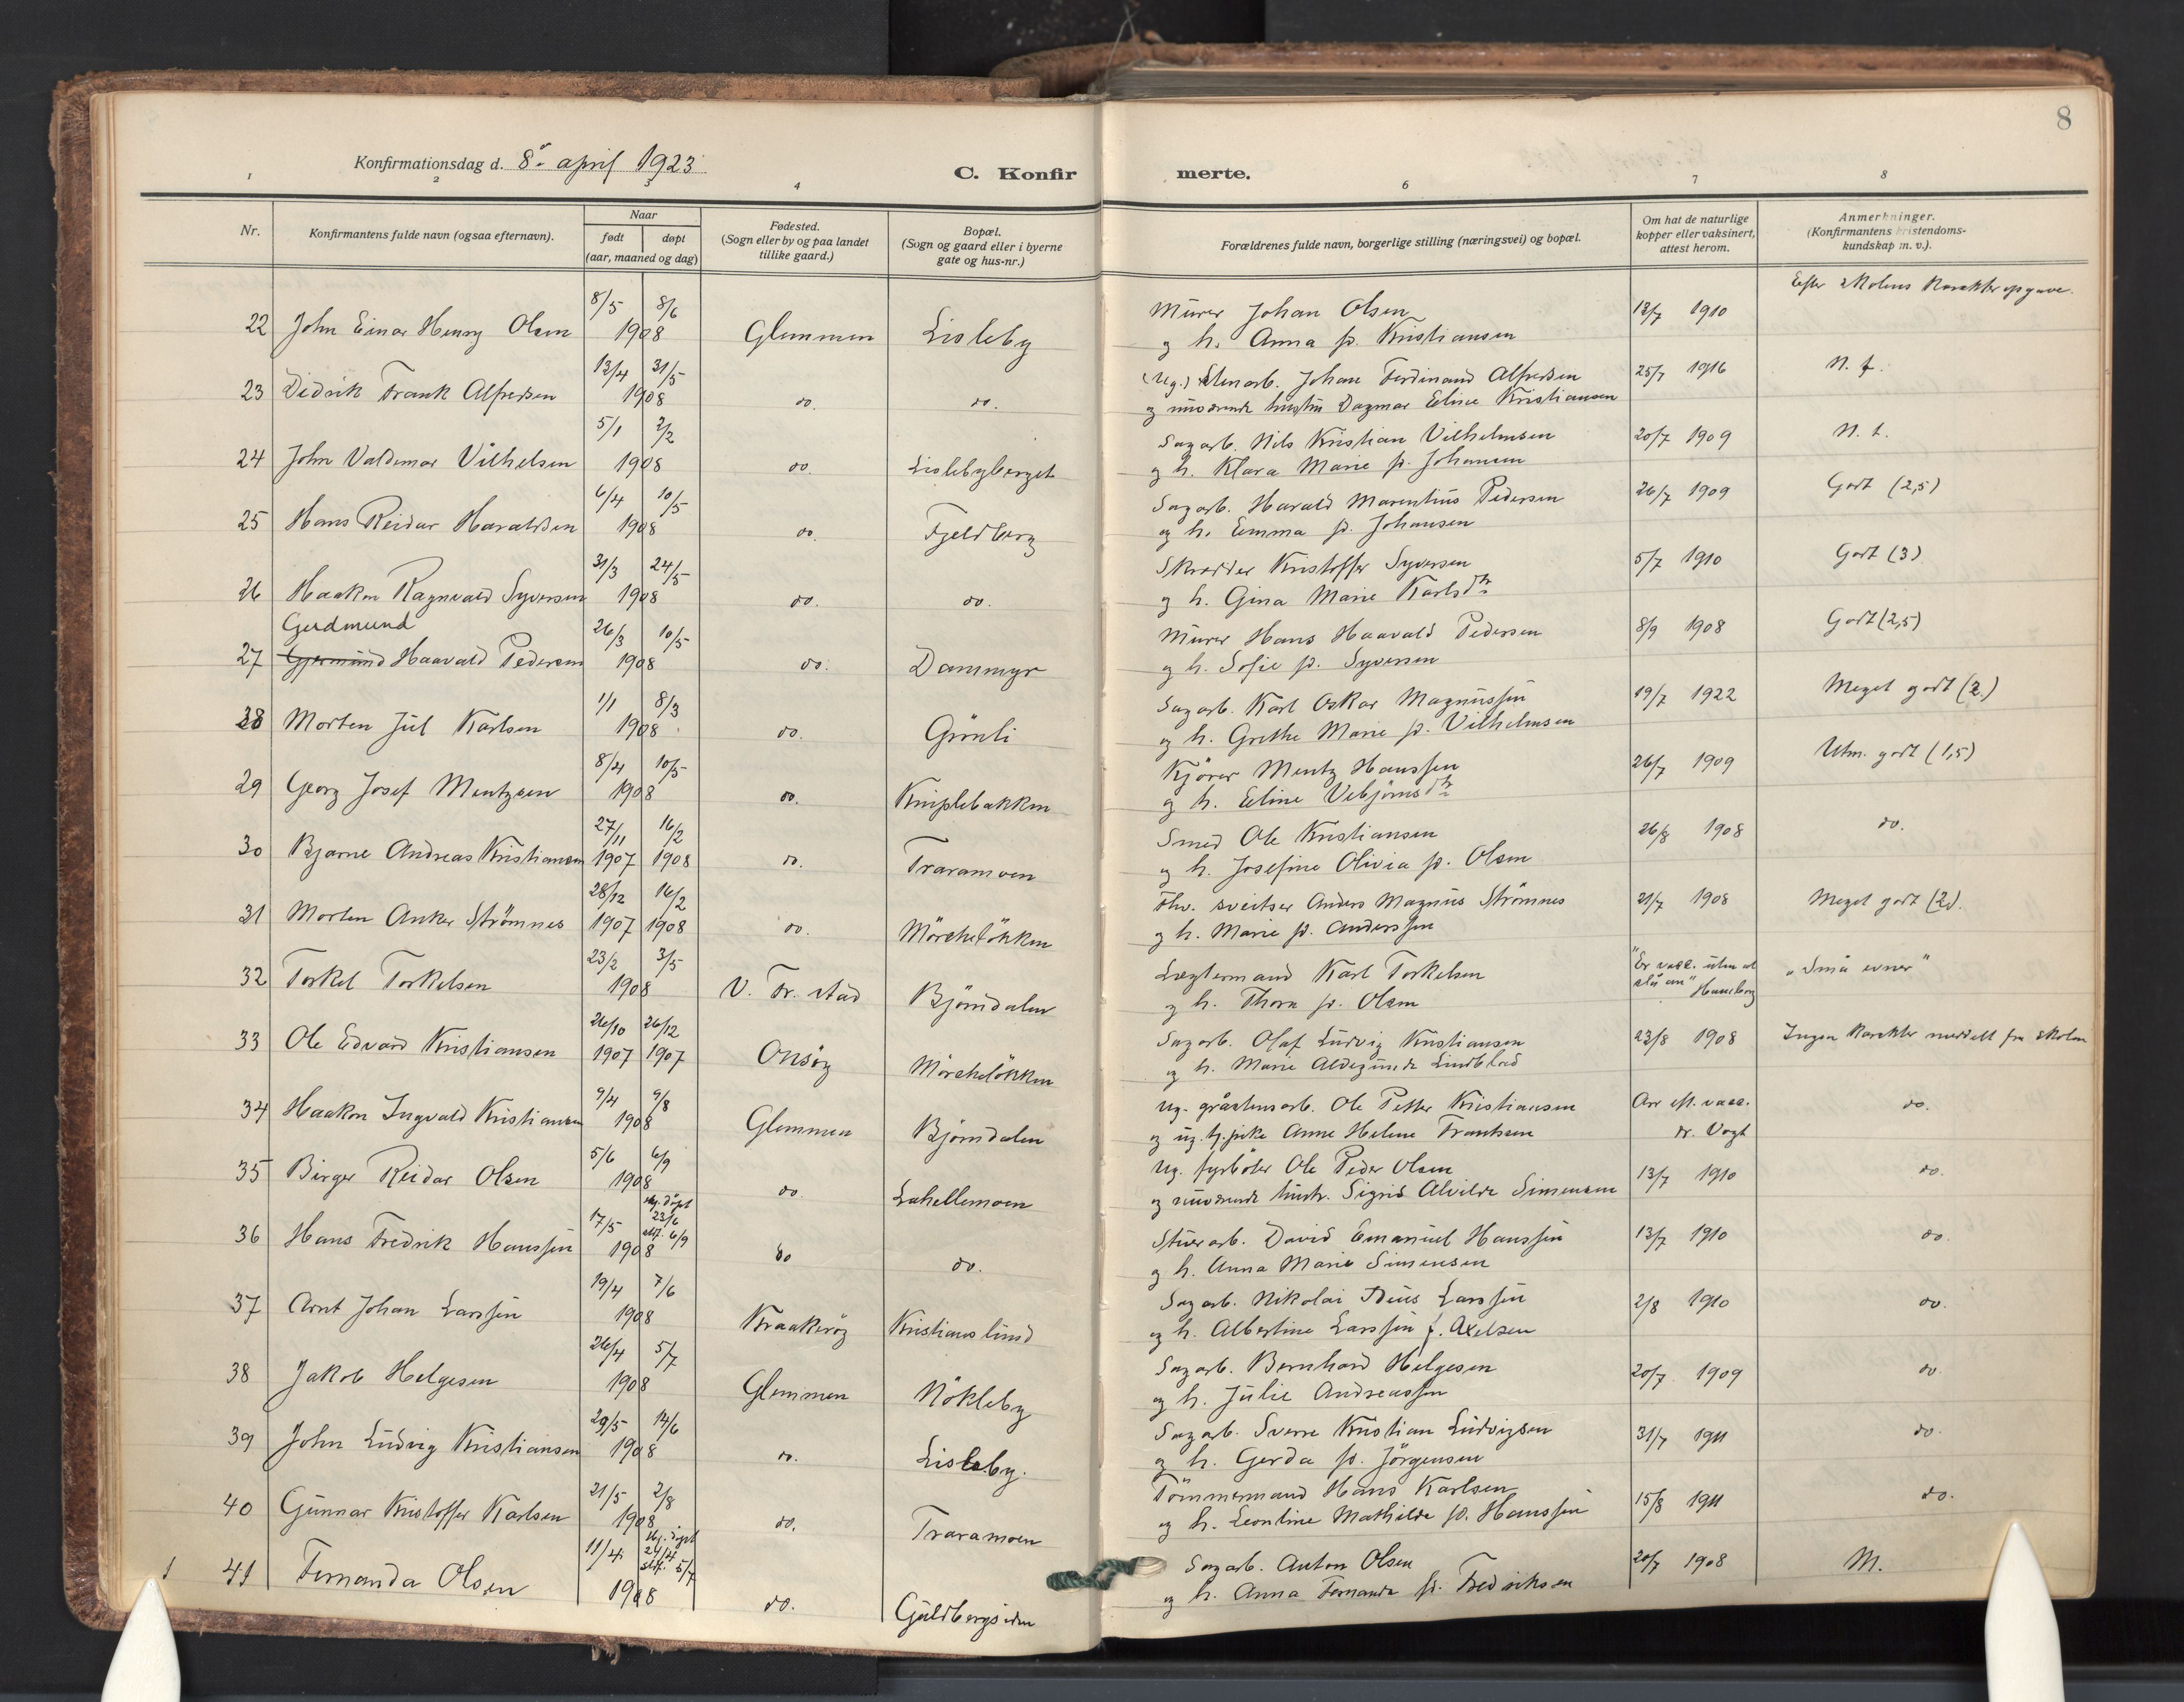 8
Konfirmationsdag d. 8de april 1923.
C. Konfirmerte.
1 2 3 4 6 7 8
Nr.
Konfirmantens fulde navn (ogsaa efternavn).
Naar
født døpt
(aar, maaned og dag)
Fødested.
(Sogn eller by og paa landet
tillike gaard.)
Bopæl.
(Sogn og gaard eller i byerne
gate og hus-nr.)
Forældrenes fulde navn, borgerlige stilling (næringsvei) og bopæl.
Om hat de naturlige
kopper eller vaksinert,
attest herom.
Anmerkninger.
(Konfirmantens kristendoms-
kundskap m. v.).
Efter skolens karakteropgave.
22 John Einar Henry Olsen 8/5 8/6 1908 Glemmen Lisleby Murer Johan Olsen 1910
og h. Anna f. Kristiansen
23 Didrik Frank Alfredsen 13/4 31/5 1908 do. do. (Ug.) Stenarb. Johan Ferdinand Alfredsen 25/7 1916 N. t.
og nuværende hustru Dagmar Eline Kristiansen
24 John Valdemar Vilhelsen 5/1 2/2 1908 do Lislebyberget Sagarb. Nils Kristian Vilhelmsen 20/7 1909 N. t.
og h. Klara Marie f. Johansen
25 Hans Reidar Haraldsen 6/4 10/5 1908 do. Fjeldberg Sagarb. Harald Marentius Pedersen 26/7 1909 Godt (2,5)
og h. Emma f. Johansen
26 Haakon Ragnvald Syversen 31/3 24/5 1908 do. do. Skrædder Kristoffer Syversen 5/7 1910 Godt (3)
og h. Gina Marie Karlsdtr
Gerdmund
27 Gjermund Haavald Pedersen 26/3 10/5 1908 do. Dammyr Murer Hans Haavald Pedersen 8/9 1908 Godt (2,5)
og h. Sofie f. Syversen
28 Morten Jul Karlsen 1/1 8/3 1908 do. Grönli Sagarb. Karl Oskar Magnussen 19/7 1922 Meget godt (2.)
og h. Grethe Marie f. Vilhelmsen
29 Georg Josef Mentzsen 8/4 10/5 1908 do. Kniplebakken Kjörer Mentz Hanssen 26/7 1909 Utm. godt (1,5)
og h. Eline Vebjörnsdtr
30 Bjarne Andreas Kristiansen 27/11 1907 16/2 1908 do. Traramoen Smed Ole Kristiansen 26/8 1908 do.
og h. Josefine Olivia f. Olsen
31 Morten Anker Strömnes 28/12 1907 16/2 1908 do. Mörcheløkken Fhv. sveitser Anders Magnus Strömnes 21/7 1908 Meget godt (2).
og h. Marie f. Anderssen
32 Torkel Torkelsen 23/2 3/5 1908 V. Fr. stad Björndalen Lægtermand Karl Torkelsen "Er vacc. uten at "Små evner"
og h. Thora f. Olsen slå an"
33 Ole Edvard Kristiansen 26/10 1907 26/12 1907 Onsöy Mörcheløkken Sagarb. Olaf Ludvig Kristiansen 23/8 1908 Ingen karakter meddelt fra skolen
og h. Marie Aldegunda Lindblad
34 Haakon Ingvald Kristiansen 9/4 9/8 1908 Glemmen Björndalen Ug. gråstensarb. Ole Petter Kristiansen Arr eft. vacc. do.
og ug. tj. pike Anne Helene Frantsen dr. Vogt
35 Birger Reidar Olsen 5/6 6/9 1908 do. Lahellemoen Ug. fyrböter Ole Peder Olsen 13/7 1910 do.
og nuværende hustr. Sigrid Alvilde Simensen
36 Hans Fredrik Hanssen 17/5 hj. döpt 23/6 stf. 6/9 1908 do do. Stuerarb. David Emanuel Hanssen 13/7 1910 do.
og h. Anna Marie Simensen
37 Arnt Johan Larssen 19/4 7/6 1908 Kraakeröy Kristianslund Sagarb. Nikolai Larssen 2/8 1910 do.
og h. Albertine Larssen f. Axelsen
38 Jakob Helgesen 26/4 5/7 1908 Glemmen Nökleby Sagarb. Bernhard Helgesen 20/7 1909 do.
og h. Julie Andreassen
39 John Ludvig Kristiansen 29/5 14/6 1908 do. Lisleby. Sagarb. Sverre Kristian Ludvigsen 31/7 1911 do.
og h. Gerda f. Jörgensen
40 Gunnar Kristoffer Karlsen 21/5 2/8 1908 do. Traramoen Tömmermand Hans Karlsen 15/8 1911 do.
og h. Leontine Mathilde f. Hanssen
1 41 Fernanda Olsen 11/4 hj. döpt 24/4 stf. 5/7 1908 do. Guldbergsiden Sagarb. Anton Olsen 20/7 1908 M.
og h. Anna Fernanda f. Fredriksen